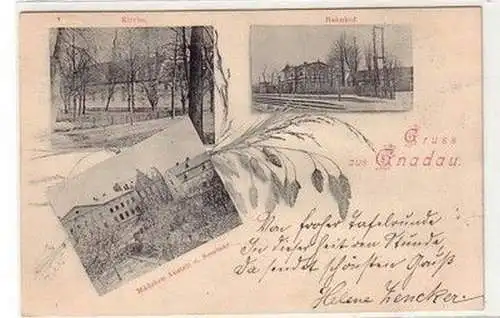 Kirche.
Bahnhof
Gruss
aus Gnadau.
Mädchen Anstalt u. Seminar
Von froher Tafelrunde
In dieser heit'ren Stunde,
Da sendet schönsten Gruß
Helene Zencker.